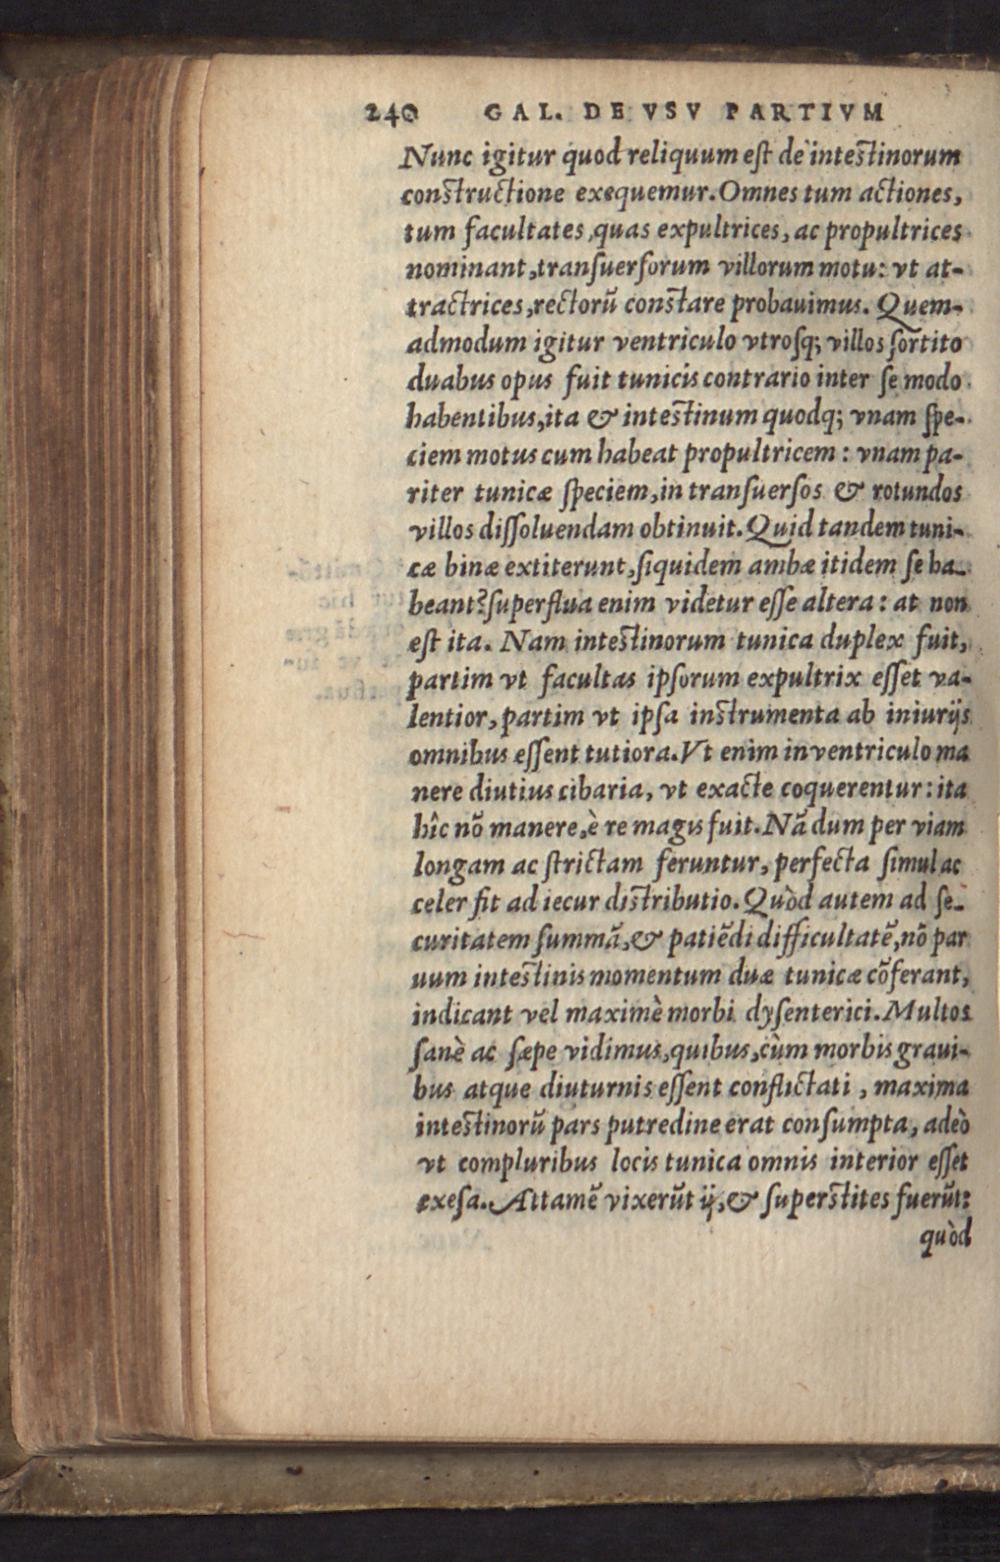 240 GAL. DE VSV PARTIVM
Nunc igitur quod reliquum eſt de intestinorum
constructione exequemur. Omnes tum actiones,
tum facultates, quas expultrices, ac propultrices
nominant, tranſuerſorum villorum motu: vt at-
tractrices, rectorũ constare probauimus. Quem-
admodum igitur ventriculo vtroſq; villos ſortito
duabus opus fuit tunicis contrario inter ſe modo
habentibus, ita & intestinum quodq; vnam ſpe-
ciem motus cum habeat propultricem: vnam pa-
riter tunicæ ſpeciem, in tranſuerſos & rotundos
villos diſſoluendam obtinuit. Quid tandem tuni-
cæ binæ extiterunt, ſiquidem ambæ itidem ſe ha-
beant? ſuperflua enim videtur eſſe altera: at non
eſt ita. Nam intestinorum tunica duplex fuit,
partim vt facultas ipſorum expultrix eſſet va-
lentior, partim vt ipſa instrumenta ab iniurijs
omnibus eſſent tutiora. Vt enim in ventriculo ma
nere diutius cibaria, vt exacte coquerentur: ita
hîc nõ manere, è re magis fuit. Nã dum per viam
longam ac ſtrictam feruntur, perfecta ſimul ac
celer fit ad iecur distributio. Quòd autem ad ſe-
curitatem ſummã, & patiẽdi difficultatẽ, nõ par
uum intestinis momentum duæ tunicæ cõferant,
indicant vel maximè morbi dyſenterici. Multos
ſanè ac ſæpe vidimus, quibus, cùm morbis graui-
bus atque diuturnis eſſent conflictati, maxima
intestinorũ pars putredine erat conſumpta, adeò
vt compluribus locis tunica omnis interior eſſet
exeſa. Attamẽ vixerũt ij, & ſuperstites fuerũt:
quòd